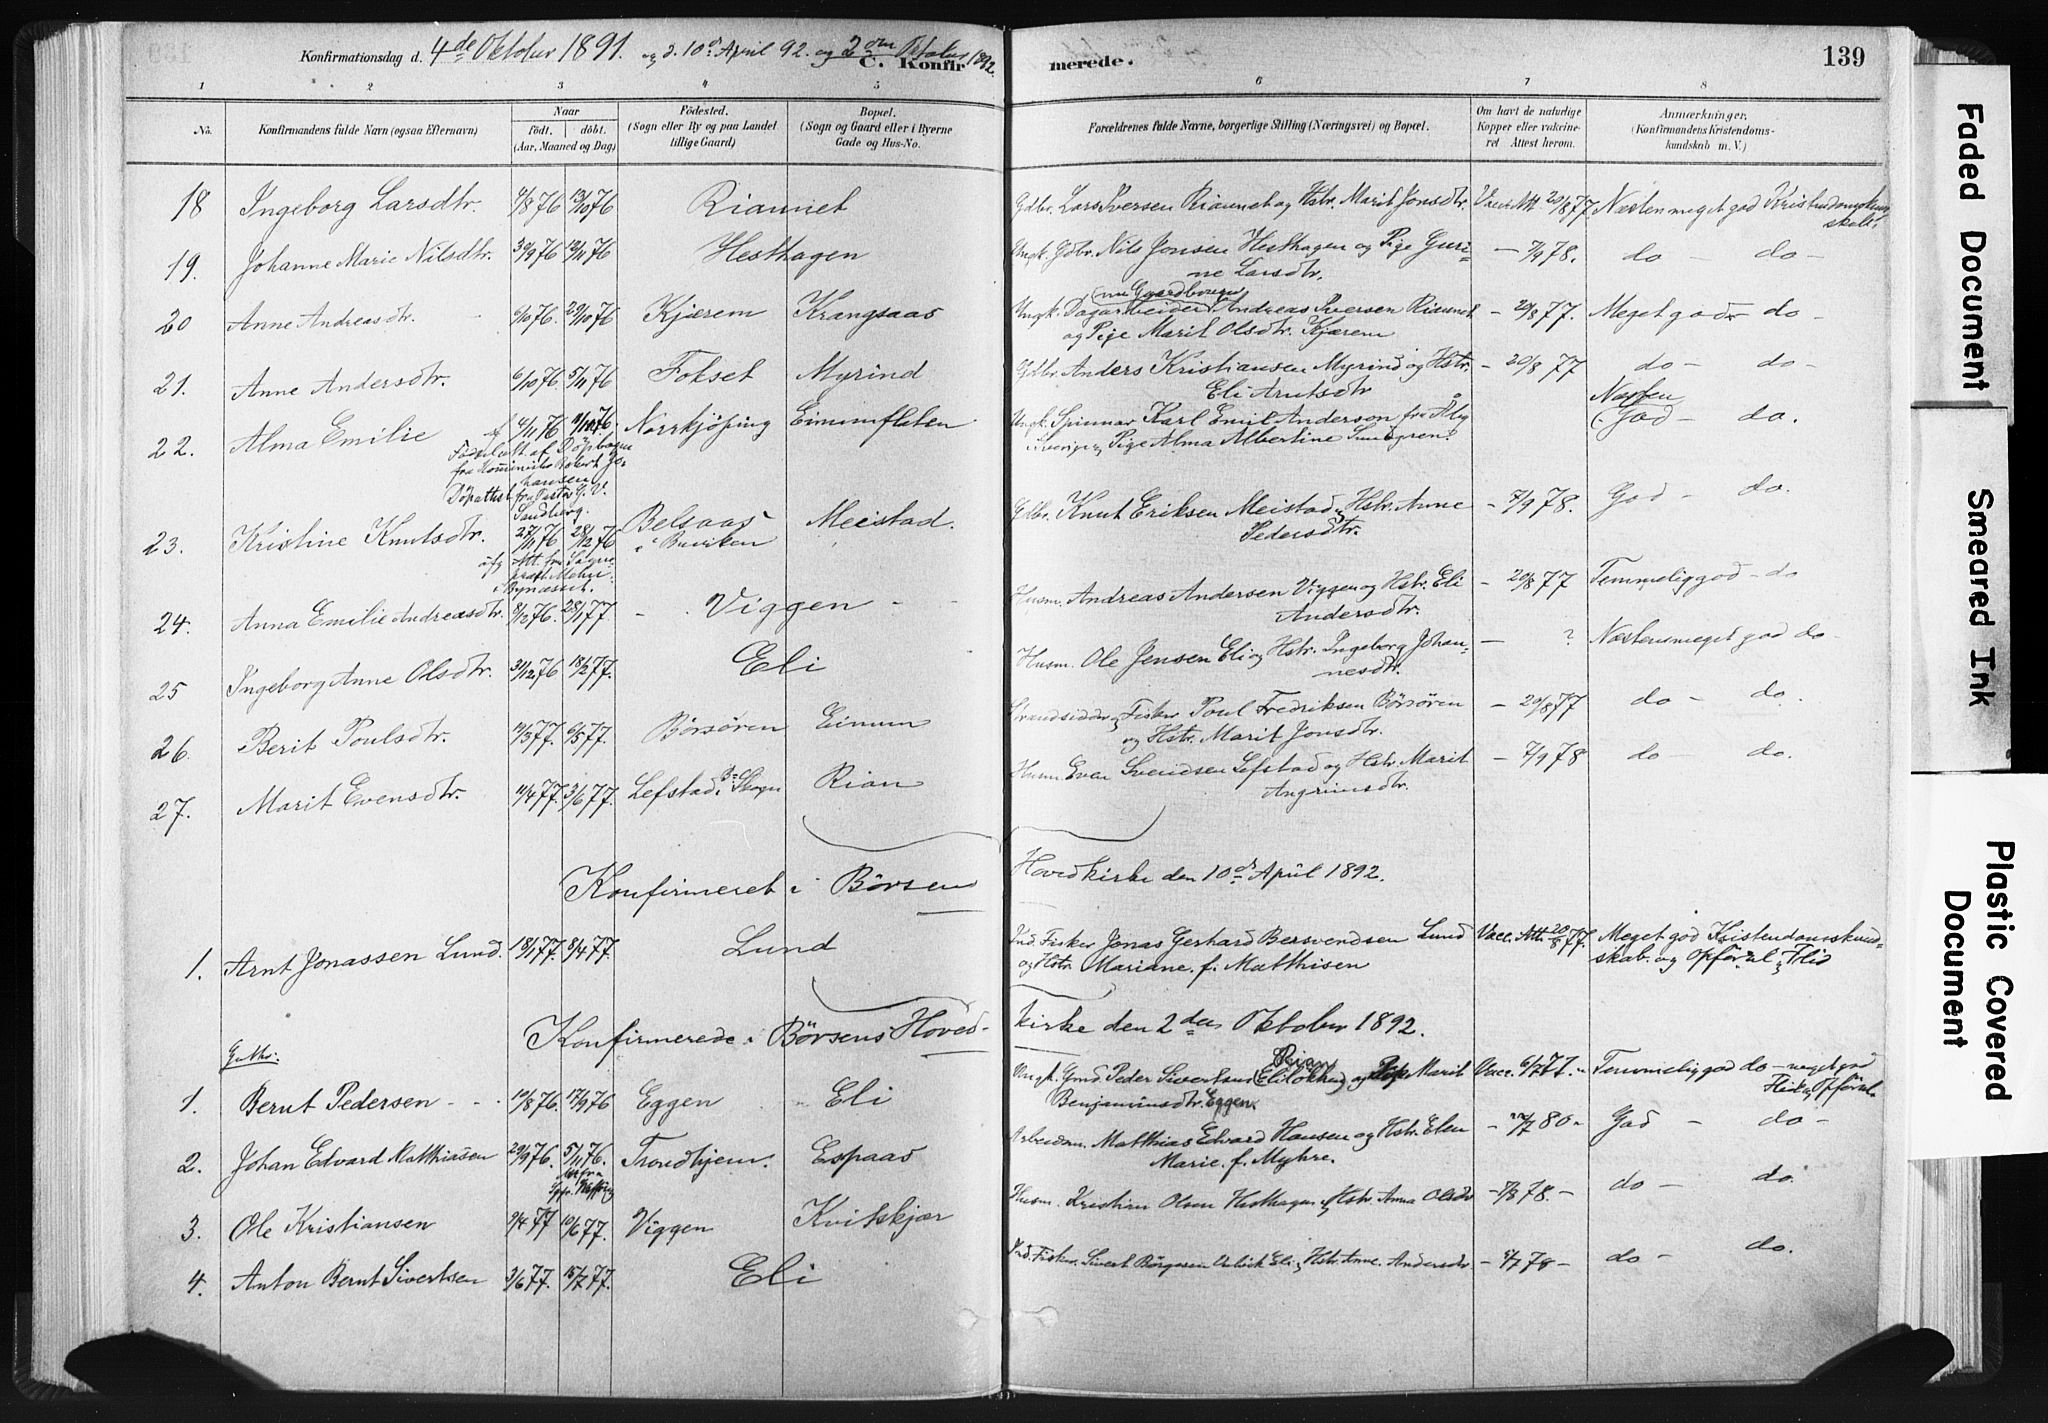 Konfirmationsdag d. 4de Oktober 1891. og d. 10de April 92. og 2den Oktober 1892.
C. Konfirmerede.
139
1 2 3 4 5 6 7 8
No.
Konfirmandens fulde Navn (ogsaa Efternavn)
Naar
födt. döbt.
(Aar, Maaned og Dag)
Födested.
(Sogn eller By og paa Landet tillige Gaard)
Bopæl.
(Sogn og Gaard eller i Byerne Gade og Hus-No.
Forældrenes fulde Navne, borgerlige Stilling (Næringsvei) og Bopæl.
Om havt de naturlige Kopper eller vakcineret Attest herom.
Anmærkninger,
(Konfirmandens Kristendomskundskab m. V.)
18 Ingeborg Larsdtr. 4/8 76 13/10 76 Riannet Gdbr. Lars Iversen Riannet og Hstr. Marit Jonsdtr. Vacc. Att. 20/8 77 Næsten meget god Kristendomskundskab.
19. Johanne Marie Nilsdtr. 30/9 76 12/11 76 Hesthagen Ungk. Gdbr. Nils Jonsen Hesthagen og Pige Guri-
ne Larsdtr. — 7/9 78. do — do —
20 Anne Andreasdtr. 6/10 76. 29/10 76 Kjærem Krangsaas Ungk. Dagarbeider (nu Gaardbruger) Andreas Iversen Riannet
og Pige Marit Olsdtr. Kjærem — 20/8 77. Meget god — do —
21. Anne Andersdtr. 6/10 76 5/11 76 Fokset Myrind Gdbr. Anders Kristiansen Myrind og Hstr.
Eli Arntsdtr — 20/8 77 do — do —
22. Alma Emilie 4/11 76 Norrkjöping Eimunflaten Ungk. Spinnar Karl Emil Anderson fra Åby
i Sverige og Pige Alma Albertine Sundgren. Næsten
God — do.
Födselsatt. af Döpbogen
fra Komminister Robert Johansen
Döpattest fra Pastor G. V.
Sandberg.
23. Kristine Knutsdtr. 27/11 76 28/12 76 Belsaas
i Buviken Meistad. Gdbr. Knut Eriksen Meistad og Hstr. Anne
Pedersdtr. — 7/9 78. God — do.
Att. fra Sogne-
præst Mehn.
i Bynæsset.
24. Anna Emilie Andreasdtr. 8/12 76. 28/1 77 — Viggen — Husm. Andreas Andersen Viggen og Hstr. Eli
Andersdtr. — 20/8 77 Temmelig god — do
25 Ingeborg Anne Olsdtr. 31/12 76 18/2 77. Eli Husm. Ole Jensen Eli og Hstr. Ingeborg Johan-
nesdtr. — ? Næsten meget god do —
26. Berit Poulsdtr. 19/3 77. 6/5 77. Börsören Eimun Strandsidder og Fisker Poul Fredriksen Börsören
og Hstr. Marit Jonsdtr. — 20/8 77 do — do.
27. Marit Evensdtr. 11/4 77. 3/6 77. Lefstad i Bö. Skogn Rian Husm. Even Svendsen Lefstad og Hstr. Marit
Angrimsdtr. — 7/9 78 do — do.
Konfirmeret i Börsens Hovedkirke den 10de April 1892.
1. Arnt Jonassen Lund. 18/1 77. 8/4 77. Lund Ind. Fisker Jonas Gerhard Bersvendsen Lund
og Hstr. Mariane f. Matthisen Vacc. Att. 20/8 77. Meget god Kristendomskund-
skab. og Opförsel og Flid
Konfirmerede i Börsens Hovedkirke den 2den Oktober 1892.
Gutter:
1. Bernt Pedersen — 19/8 76. 17/9 76 Eggen Eli Ungk. Gmd. Peder Sivertsen (Rian) og Pige Marit
Benjaminsdtr. Eggen. Vacc. 6/7 77. Temmelig god do — meget god
Flid og Opförsel.
2. Johan Edvard Matthiasen 29/9 76. 5/11 76. Trondhjem. Espaas Arbeidsm. Matthias Edvard Hansen og Hstr. Elen
Marie f. Myhre. — 80 — God — do —
3. Ole Kristiansen 9/4 77 10/6 77. Viggen Kvitskjær Husm. Kristian Olsen Hesthagen og Hstr. Anna Olsdtr — 7/8 78. — do — do.
4. Anton Bernt Sivertsen 3/6 77. 15/7 77. Eli Ind. Fisker. Sivert Börgesen Eli og Hstr. Anne Andersdtr — 78 — do — do.
Faded Document
Smeared Ink
Plastic Covered Document